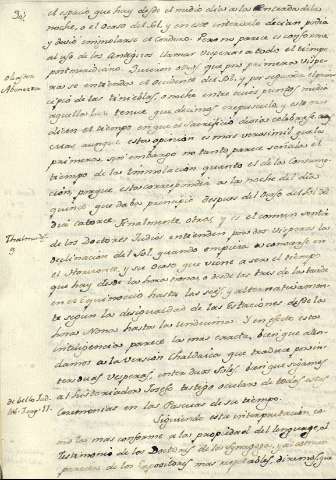 el espacio que hay desde el medio dia a las
noche, o el ocaso del Sol, y en este intervalo decian podia
y devia immolarse el Cordero. Pero no parece es conforme
al uso de los Antiguos llamar visperas a todo el tiempo
postmeridiano. Juzgan otros que por primeras vispe-
ras se entiende el occidente del Sol, y por segundas el prin-
cipio de las tinieblas, o noche entre cuios puntos media
aquella luz tenue que decimos crepusculo, y esta
en el tiempo en que el sacrificio
aunque esta opinion es mas verosimil que la
primera sin embargo no tanto parece señalar el
tiempo de la immolacion quanto el de la Consump-
cion, porque esta correspondia a la noche del dia
quince que daba principio despues del Ocaso del Sol del
dia catorce. Finalmente otros, y es el comun sentir
de los Doctores Judios entienden por dos visperas la
declinacion del Sol, quando empieza a
el Horizonte, y su Ocaso que viene a ser el tiempo
que hay desde la hora nona o desde las tres de la tarde
en el equinoccio hasta las seis, y alternativamen-
te segun la desigualdad de las Estaciones desde la
hora Nona hasta la undecima. Y en efecto esta
inteligencia parece la mas exacta, bien que aten-
damos a la Version Chaldaica que traduce por
Visperas, entre dos Soles, bien que sigamos
al historiador Josefo testigo ocular de todas estas
Ceremonias en las Pascuas de su tiempo.
Siguiendo esta interpretacion, co-
mo la mas conforme a la propiedad del lenguage, al
Testimonio de los Doctores de la Synagoga, y al comun
parecer de los Expositores mas respetables, diremos, que
de bello Jud.